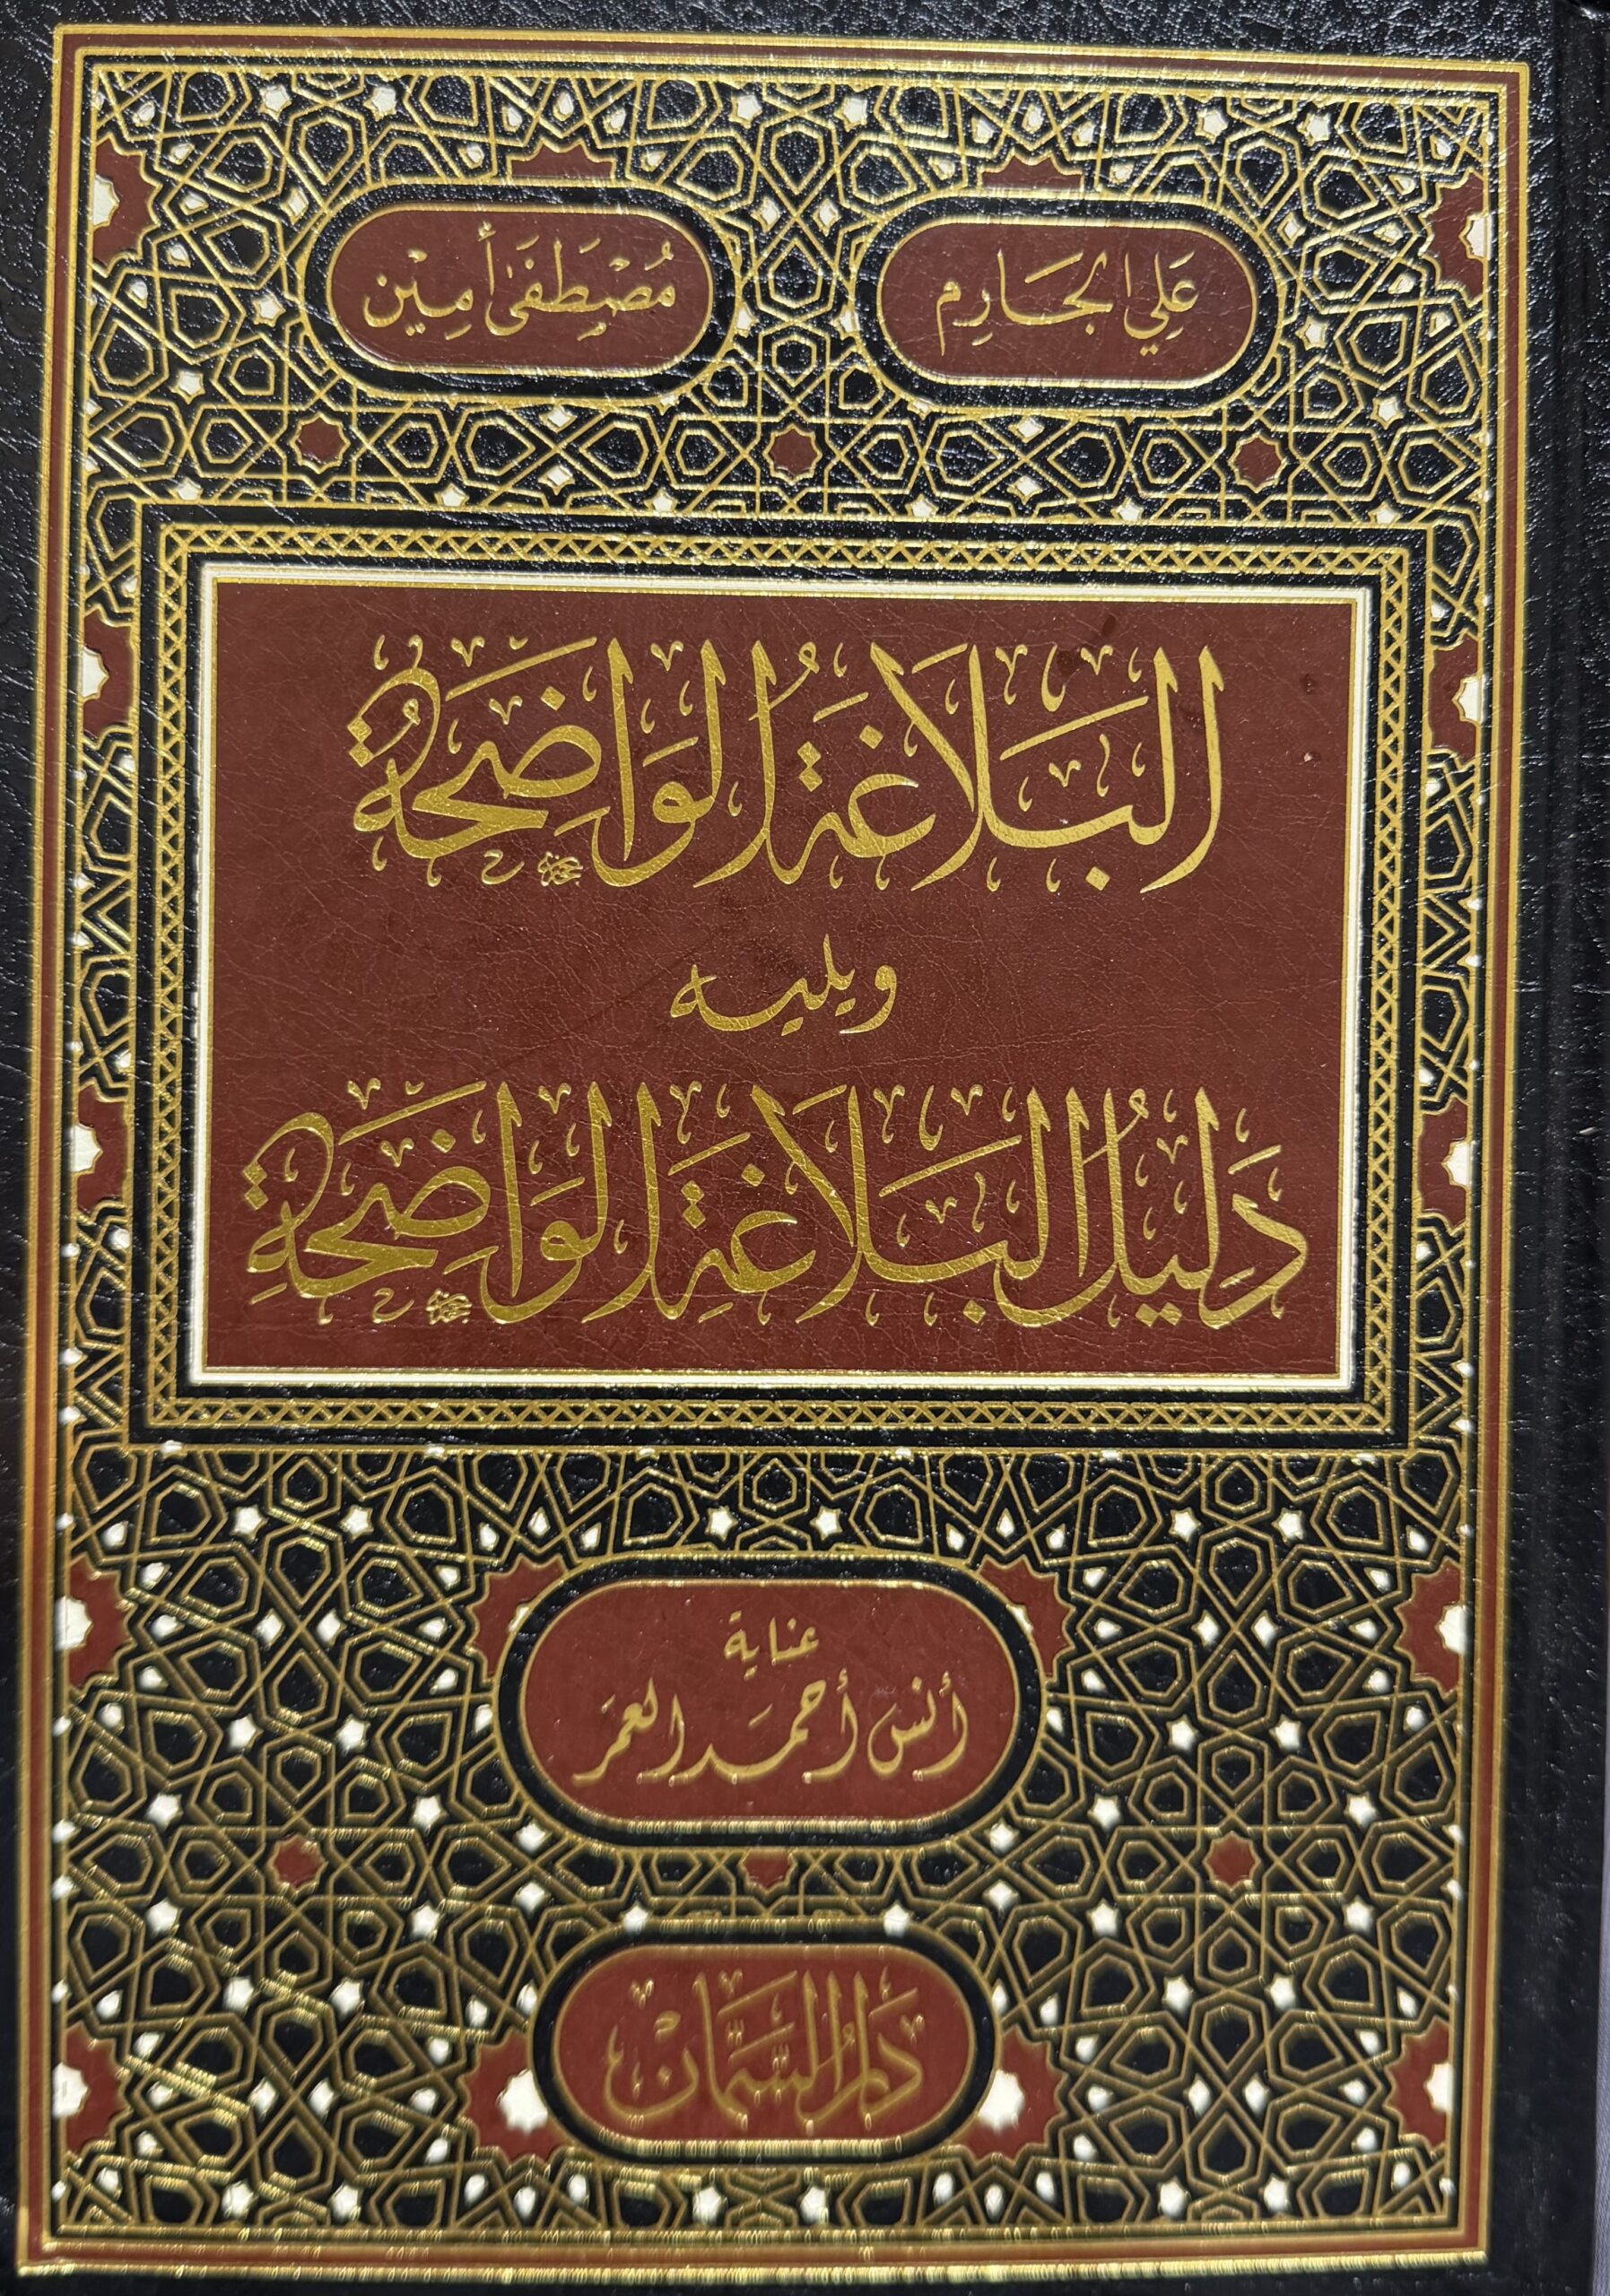 عَلِي الجَارِم
مُصْطَفَىٰ أَمِيْن
البَلَاغَةُ الوَاضِحَةُ
ويليه
دَلِيلُ البَلَاغَةِ الوَاضِحَةِ
عناية
أنس أحمَد العمَر
دَارُ السَّمَّان